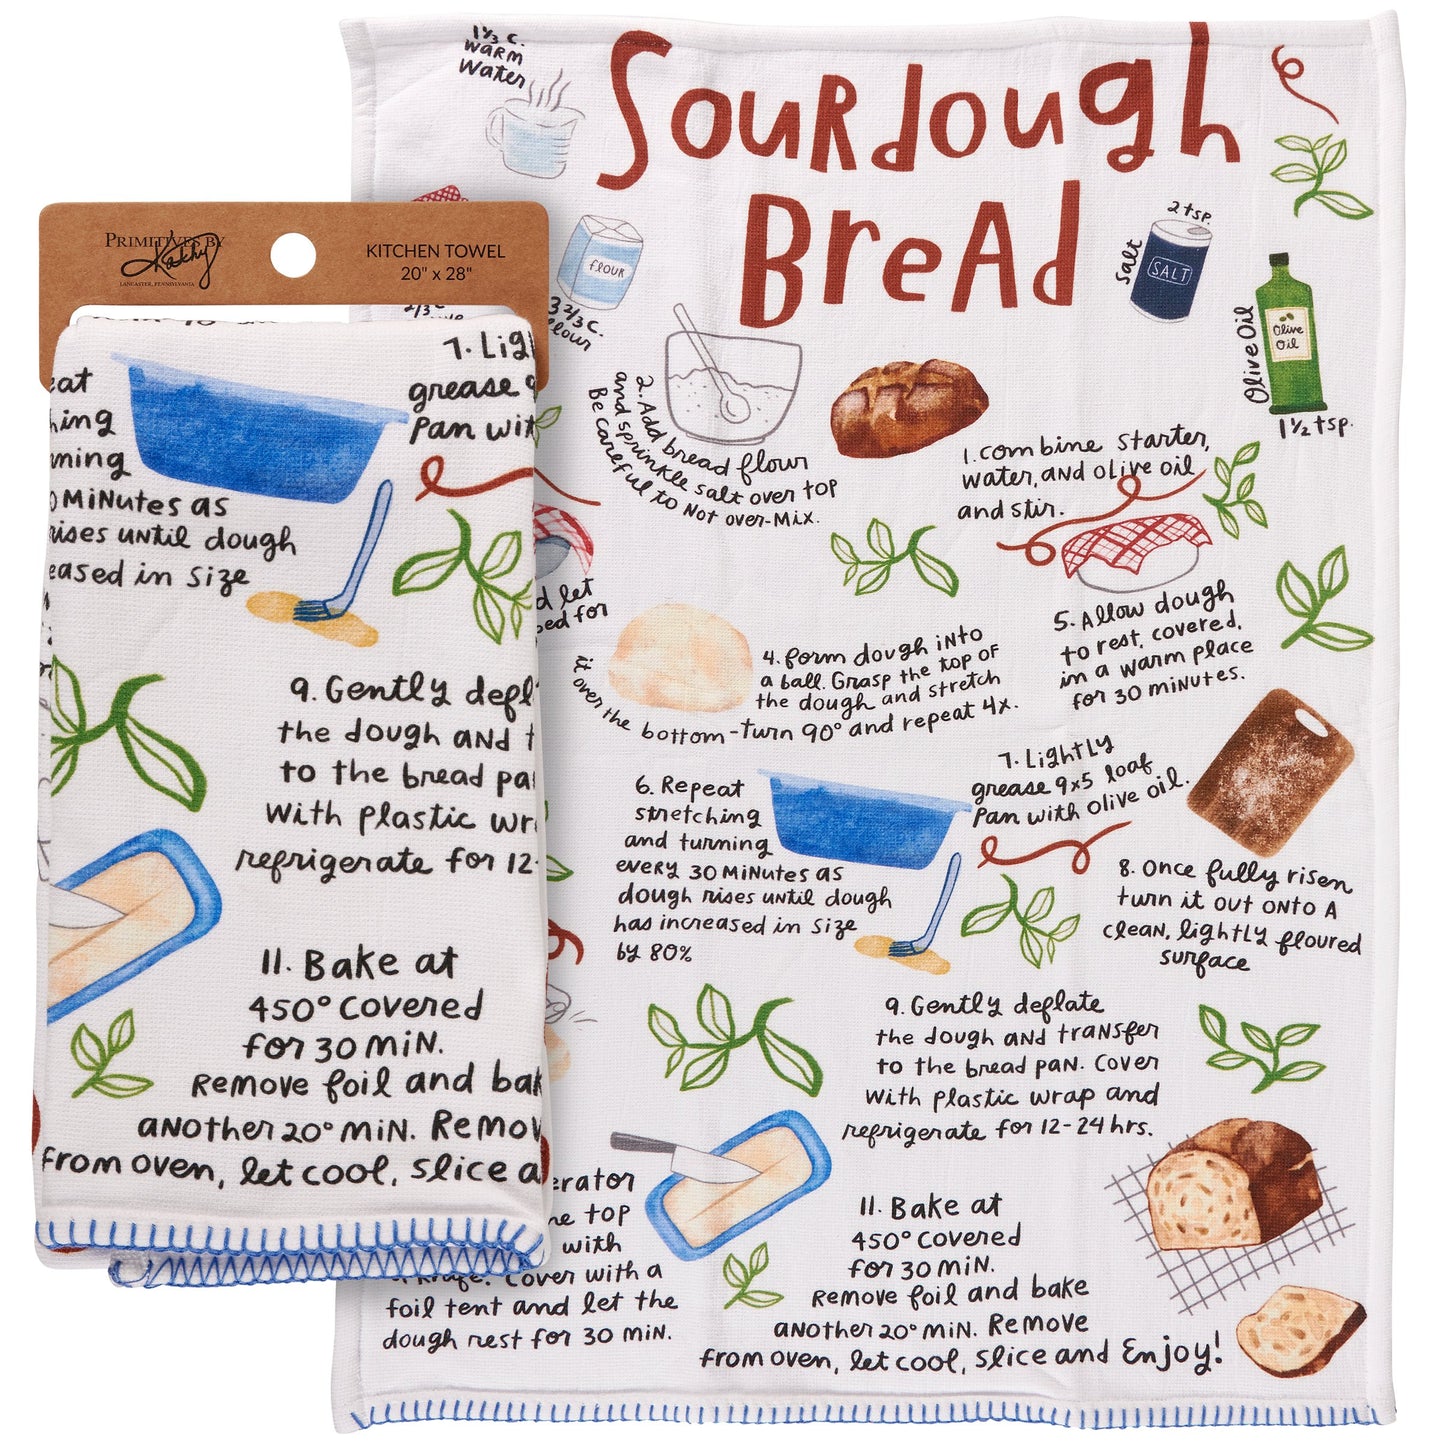 PRIMITIVES BY
Kathy
LANCASTER, PENNSYLVANIA
KITCHEN TOWEL
20" x 28"
7. Lig
grease 9
Pan wit
eat
hing
rning
0 MiNutes as
rises until dough
eased in size
9. Gently defl
the dough and t
to the bread pa
with plastic wr
refrigerate for 12-
11. Bake at
450° covered
for 30 MiN.
Remove foil and bak
another 20° MiN. Remov
from oven, let cool, slice a
Sourdough
Bread
1 1/3 c.
warm
water
flour
3 2/3 c.
flour
2/3 c
2 tsp.
Salt
SALT
Olive Oil
Olive
Oil
1 1/2 tsp.
1. Combine starter,
water, and olive oil
and stir.
2. Add bread flour
and sprinkle salt over top
Be careful to Not over-Mix.
d let
ed for
4. Form dough into
a ball. Grasp the top of
the dough and stretch
it over the bottom-turn 90° and repeat 4x.
5. Allow dough
to rest, covered,
in a warm place
for 30 minutes.
6. Repeat
stretching
and turning
every 30 MiNutes as
dough rises until dough
has increased in size
by 80%
7. Lightly
grease 9x5 loaf
Pan with olive oil.
8. Once fully risen
turn it out onto a
clean, lightly floured
surface
9. Gently deflate
the dough and transfer
to the bread pan. Cover
with plastic wrap and
refrigerate for 12-24 hrs.
erator
top
with
knife. Cover with a
foil tent and let the
dough rest for 30 MiN.
11. Bake at
450° covered
for 30 MiN.
Remove foil and bake
another 20° MiN. Remove
from oven, let cool, slice and Enjoy!